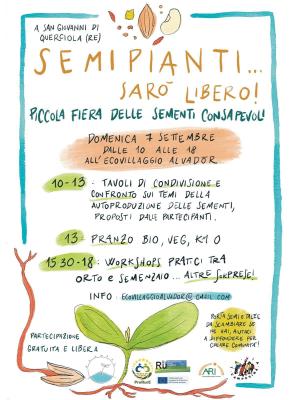 A SAN GIOVANNI DI
QUERCIOLA (RE)
SEMIPIANTI...
SARÒ LIBERO!
PICCOLA FIERA DELLE SEMENTI CONSAPEVOLI
DOMENICA 7 SETTEMBRE
DALLE 10 ALLE 18
ALL'ECOVILLAGGIO ALVADOR
10-13: TAVOLI DI CONDIVISIONE E
CONFRONTO SUI TEMI DELLA
AUTOPRODUZIONE DELLE SEMENTI,
PROPOSTI DALLE PARTECIPANTI.
13: PRANZO BIO, VEG, KM 0
15.30-18: WORKSHOPS PRATICI TRA
ORTO E SEMENZAIO... ALTRE SORPRESE!
INFO: ECOVILLAGGIOALVADOR@GMAIL.COM
PORTA SEMI E TALEE
DA SCAMBIARE SE
NE HAI, AIUTACI
A DIFFONDERE PER
CREARE COMUNITÀ!
PARTECIPAZIONE
GRATUITA E LIBERA
ARI